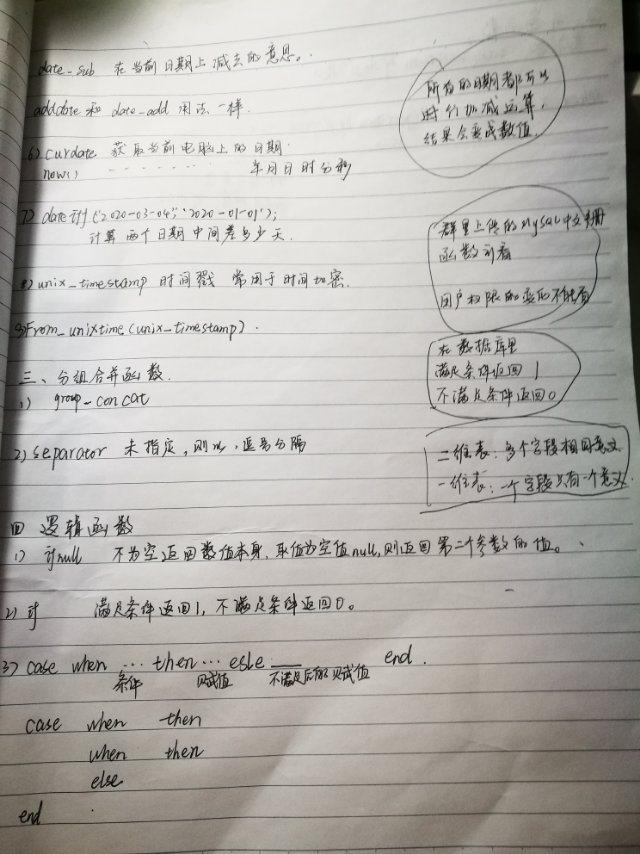 date_sub 在当前日期上减去的意思。
adddate 和 date_add 用法一样.
所有的日期都可以
进行加减运算,
结果会变成数值.
6) curdate 获取当前电脑上的日期.
now() ········ 年月日时分秒
7) datediff('2020-03-04','2020-01-01');
计算两个日期中间差多少天.
群里上传的MySQL中文手册
函数可看
用户权限的
8) unix_timestamp 时间戳 常用于时间加密.
9) From_unixtime(unix_timestamp).
在数据库里
满足条件返回1
不满足条件返回0
三、分组合并函数.
1) group_concat
2) separator 未指定,则以,逗号分隔
二维表:多个字段相同意义
一维表:一个字段只有一个意义.
四 逻辑函数
1) ifnull 不为空返回数值本身,取值为空值null,则返回第二个参数的值。
2) if 满足条件返回1,不满足条件返回0。
3) case when ... then ... esle ___ end.
条件 则赋值 不满足后的赋值
case when then
when then
else
end